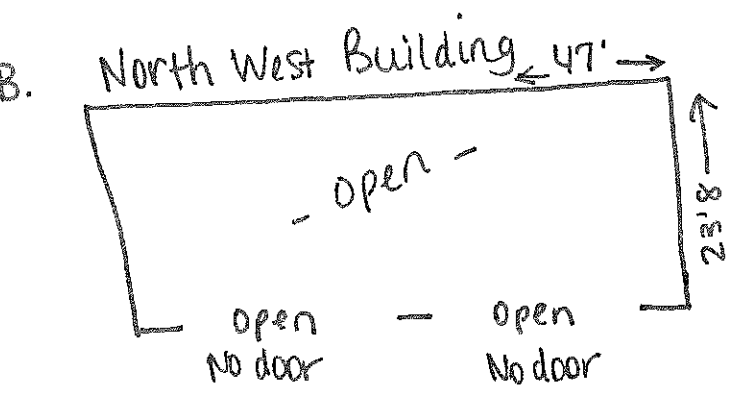 B. North West Building ← 47' →
- open -
23'8
open - open
No door No door